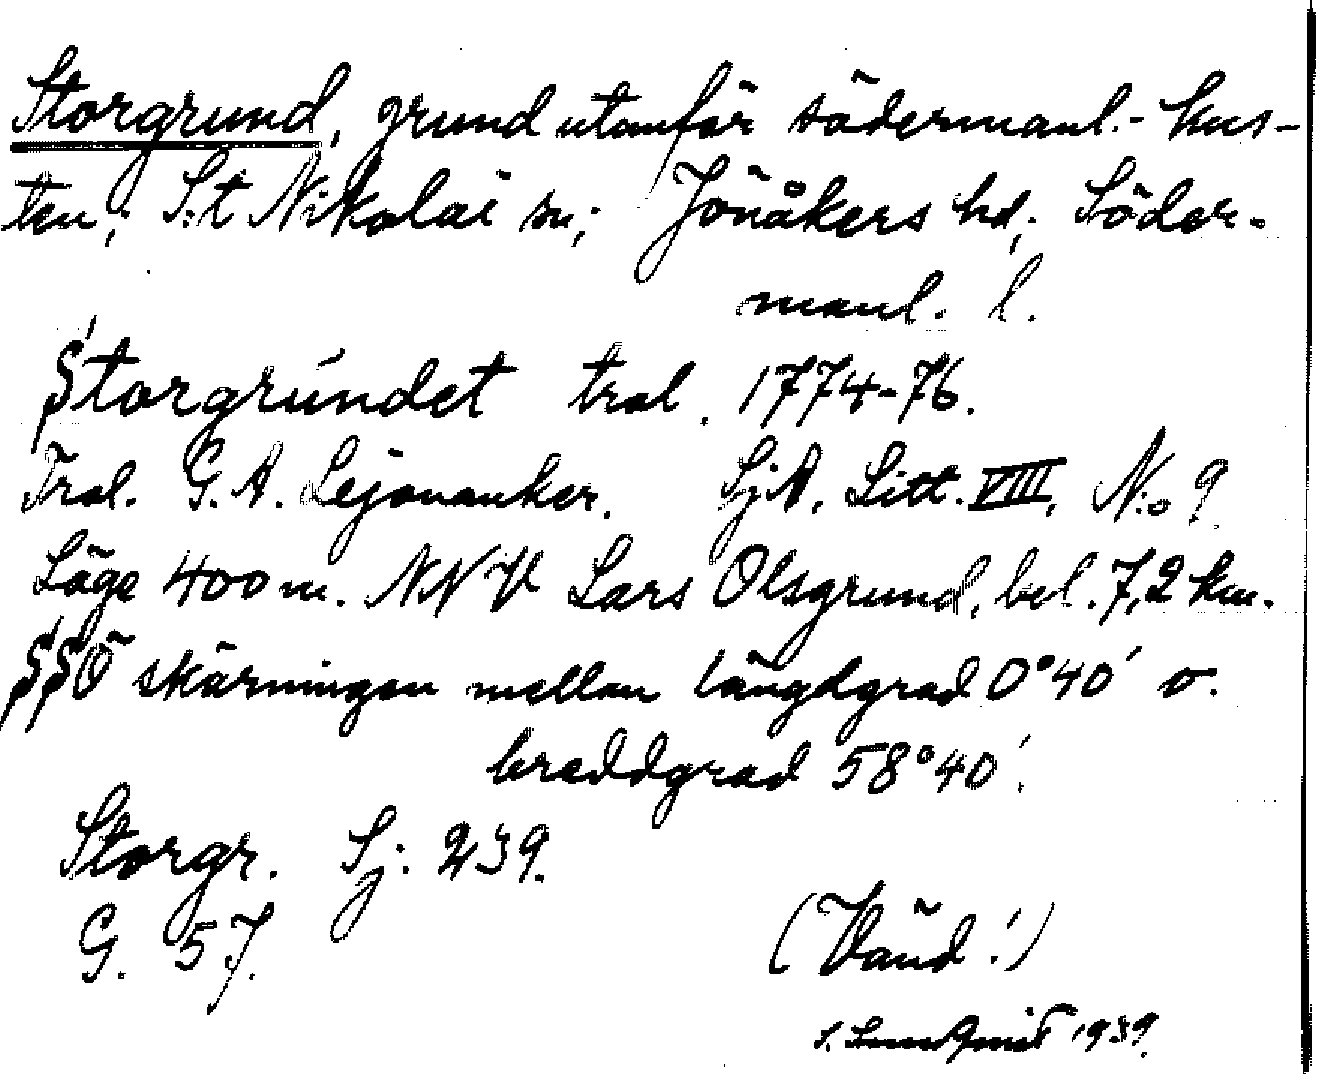 Storgrund, grund utanför södermanl.-kus-
ten; S:t Nikolai sn; Jönåkers hd; Söder-
manl. l.
Storgrundet tral. 1774-76.
Tral. G. A. Lejonanker. SjA. Litt. VIII. N:o 9
Läge 400 m. NNV Lars Olsgrund, bel. 7,2 km.
SSÖ skärningen mellan längdgrad 0°40' o.
breddgrad 58°40'.
Storgr. Sj: 239.
G. 57.
(Vänd!)
S. Lundqvist 1939.